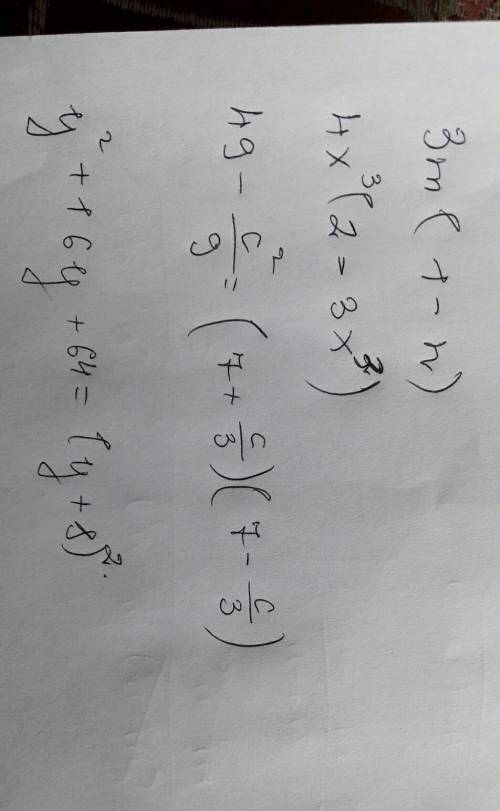 3m(1-n)
4x³(2-3x³)
49 - c²/9 = (7 + c/3)(7 - c/3)
y² + 16y + 64 = (y + 8)².